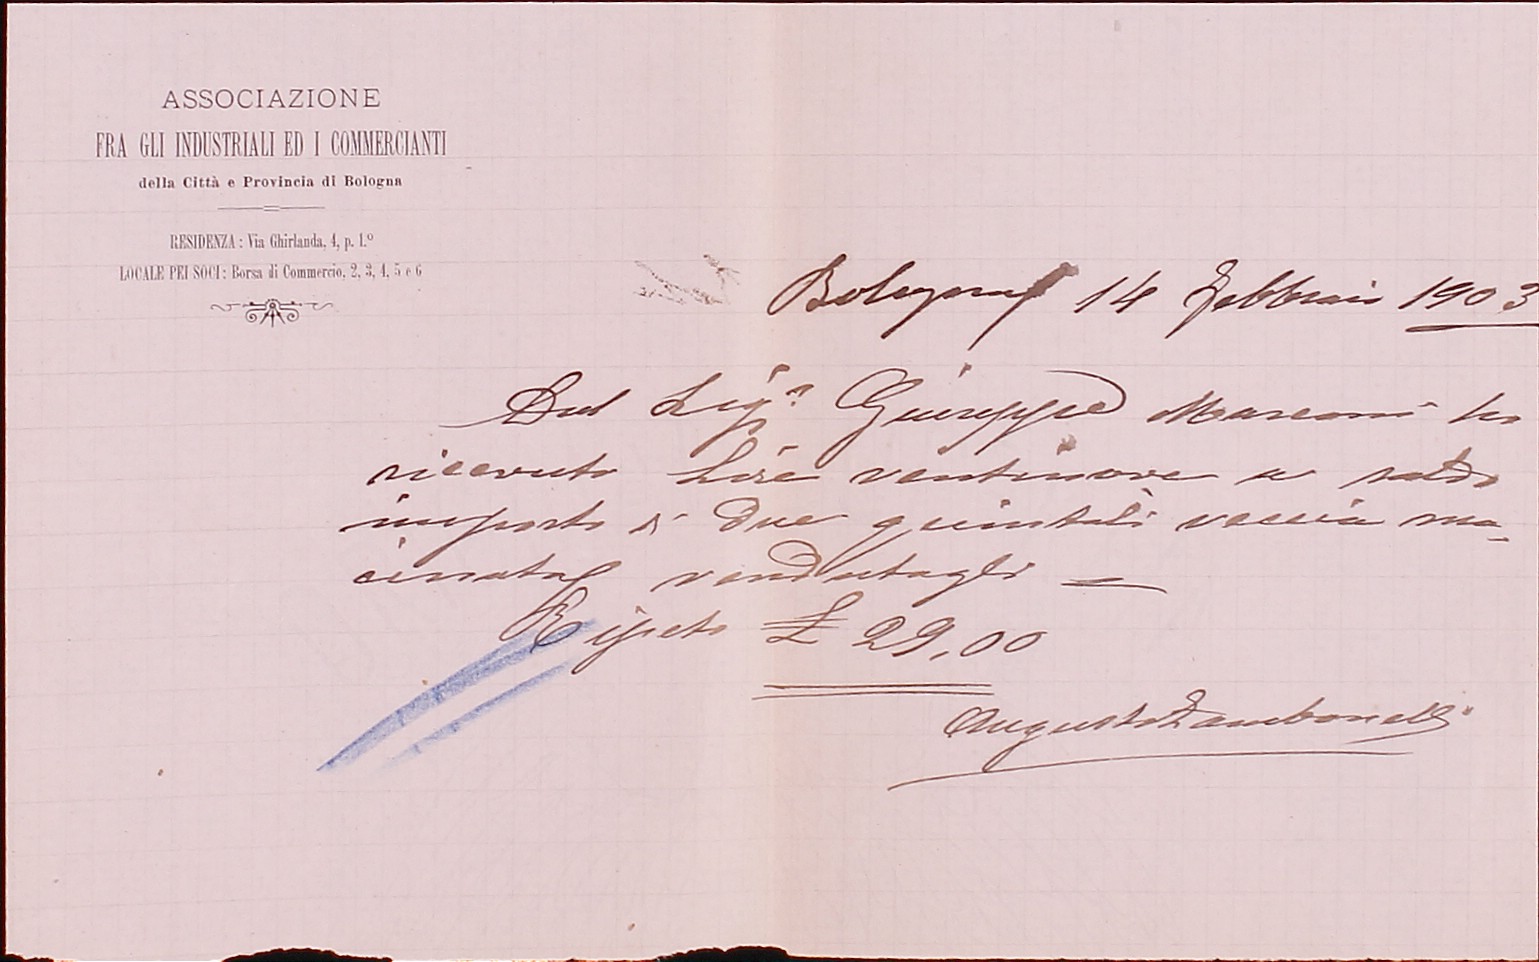 ASSOCIAZIONE
FRA GLI INDUSTRIALI ED I COMMERCIANTI
della Città e Provincia di Bologna
RESIDENZA: Via Ghirlanda, 4, p. 1.º
LOCALE PEI SOCI: Borsa di Commercio, 2, 3, 4, 5 e 6
Bologna 14 Febbraio 1903
Dal Sigr Giuseppe Marconi ho
ricevuto Lire ventinove a saldo
importo di due quintali veccia ma-
cinata vendutagli —
Ripeto £ 29,00
Augusto Zambonelli